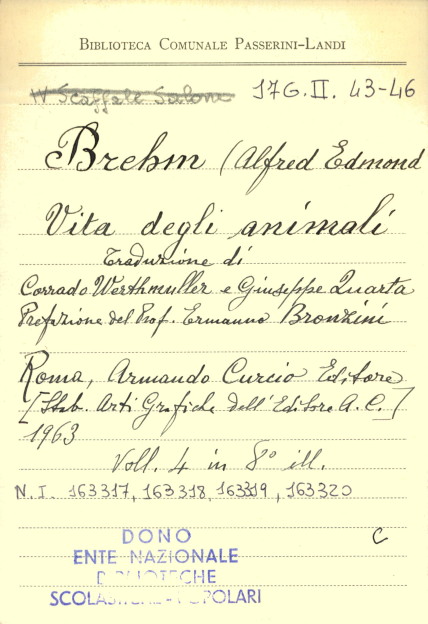 BIBLIOTECA COMUNALE PASSERINI-LANDI
IV Scaffale Salone 17G.II. 43-46
Brehm (Alfred Edmond
Vita degli animali
Traduzione di
Corrado Werthmuller e Giuseppe Quarta
Prefazione del Prof. Ermanno Bronzini
Roma, Armando Curcio Editore
[Stab. Arti Grafiche dell'Editore A. C.]
1963
Voll. 4 in 8° ill.
N.I. 163317, 163318, 163319, 163320
C
DONO
ENTE NAZIONALE
BIBLIOTECHE
SCOLASTICHE-POPOLARI